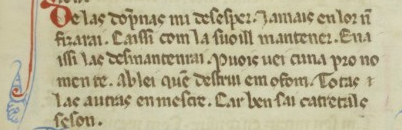 De las dōpnas mi desesper. Jamais en lor nō
fizarai. Caissi com las suoill mantener. Ena
issi las desmantenrai. Puois uei cuna pro no
men te. Ab lei quē destrui em cofon. Totas
las autras en mescre. Car ben sai catretals
se son.